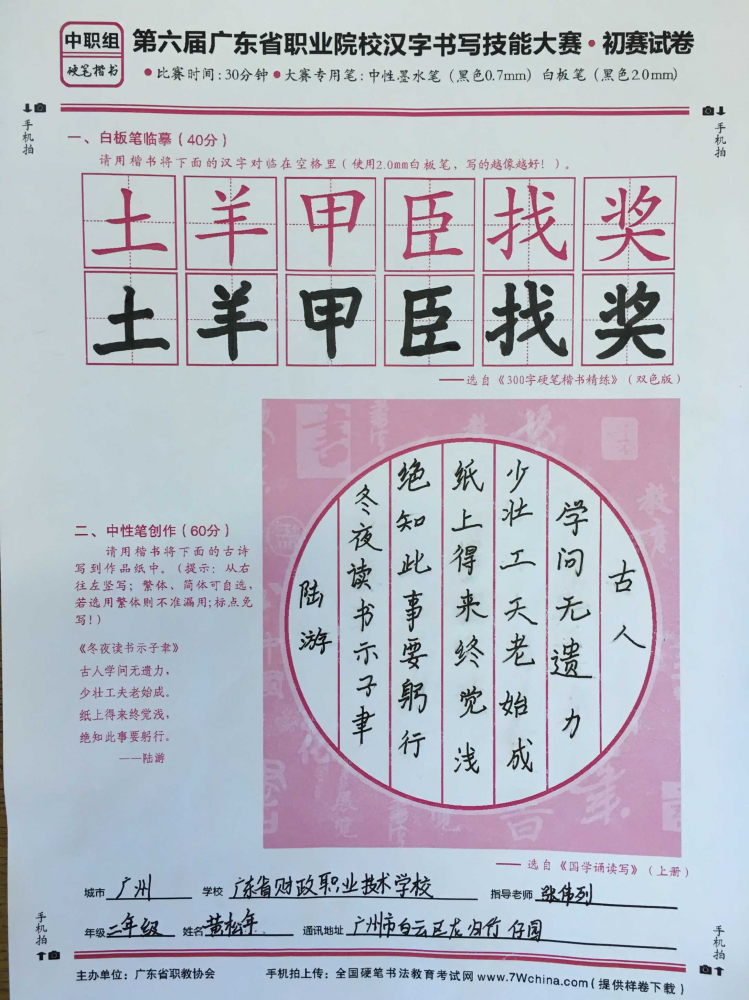 中职组
硬笔楷书
第六届广东省职业院校汉字书写技能大赛·初赛试卷
●比赛时间:30分钟●大赛专用笔:中性墨水笔（黑色0.7mm）白板笔（黑色2.0mm）
手机拍
手机拍
一、白板笔临摹（40分）
请用楷书将下面的汉字对临在空格里（使用2.0mm白板笔，写的越像越好！）。
土羊甲臣找奖
土羊甲臣找奖
——选自《300字硬笔楷书精练》（双色版）
二、中性笔创作（60分）
请用楷书将下面的古诗
写到作品纸中。（提示：从右
往左竖写；繁体、简体可自选，
若选用繁体则不准漏用;标点免
写！）
《冬夜读书示子聿》
古人学问无遗力，
少壮工夫老始成。
纸上得来终觉浅，
绝知此事要躬行。
——陆游
古人
学问无遗力
少壮工夫老始成
纸上得来终觉浅
绝知此事要躬行
冬夜读书示子聿
陆游
——选自《国学诵读写》（上册）
城市 广州 学校 广东省财政职业技术学校 指导老师 张伟列
年级 二年级 姓名 黄松年 通讯地址 广州市白云区龙归
手机拍
手机拍
主办单位：广东省职教协会 手机拍上传：全国硬笔书法教育考试网 www.7Wchina.com（提供样卷下载）